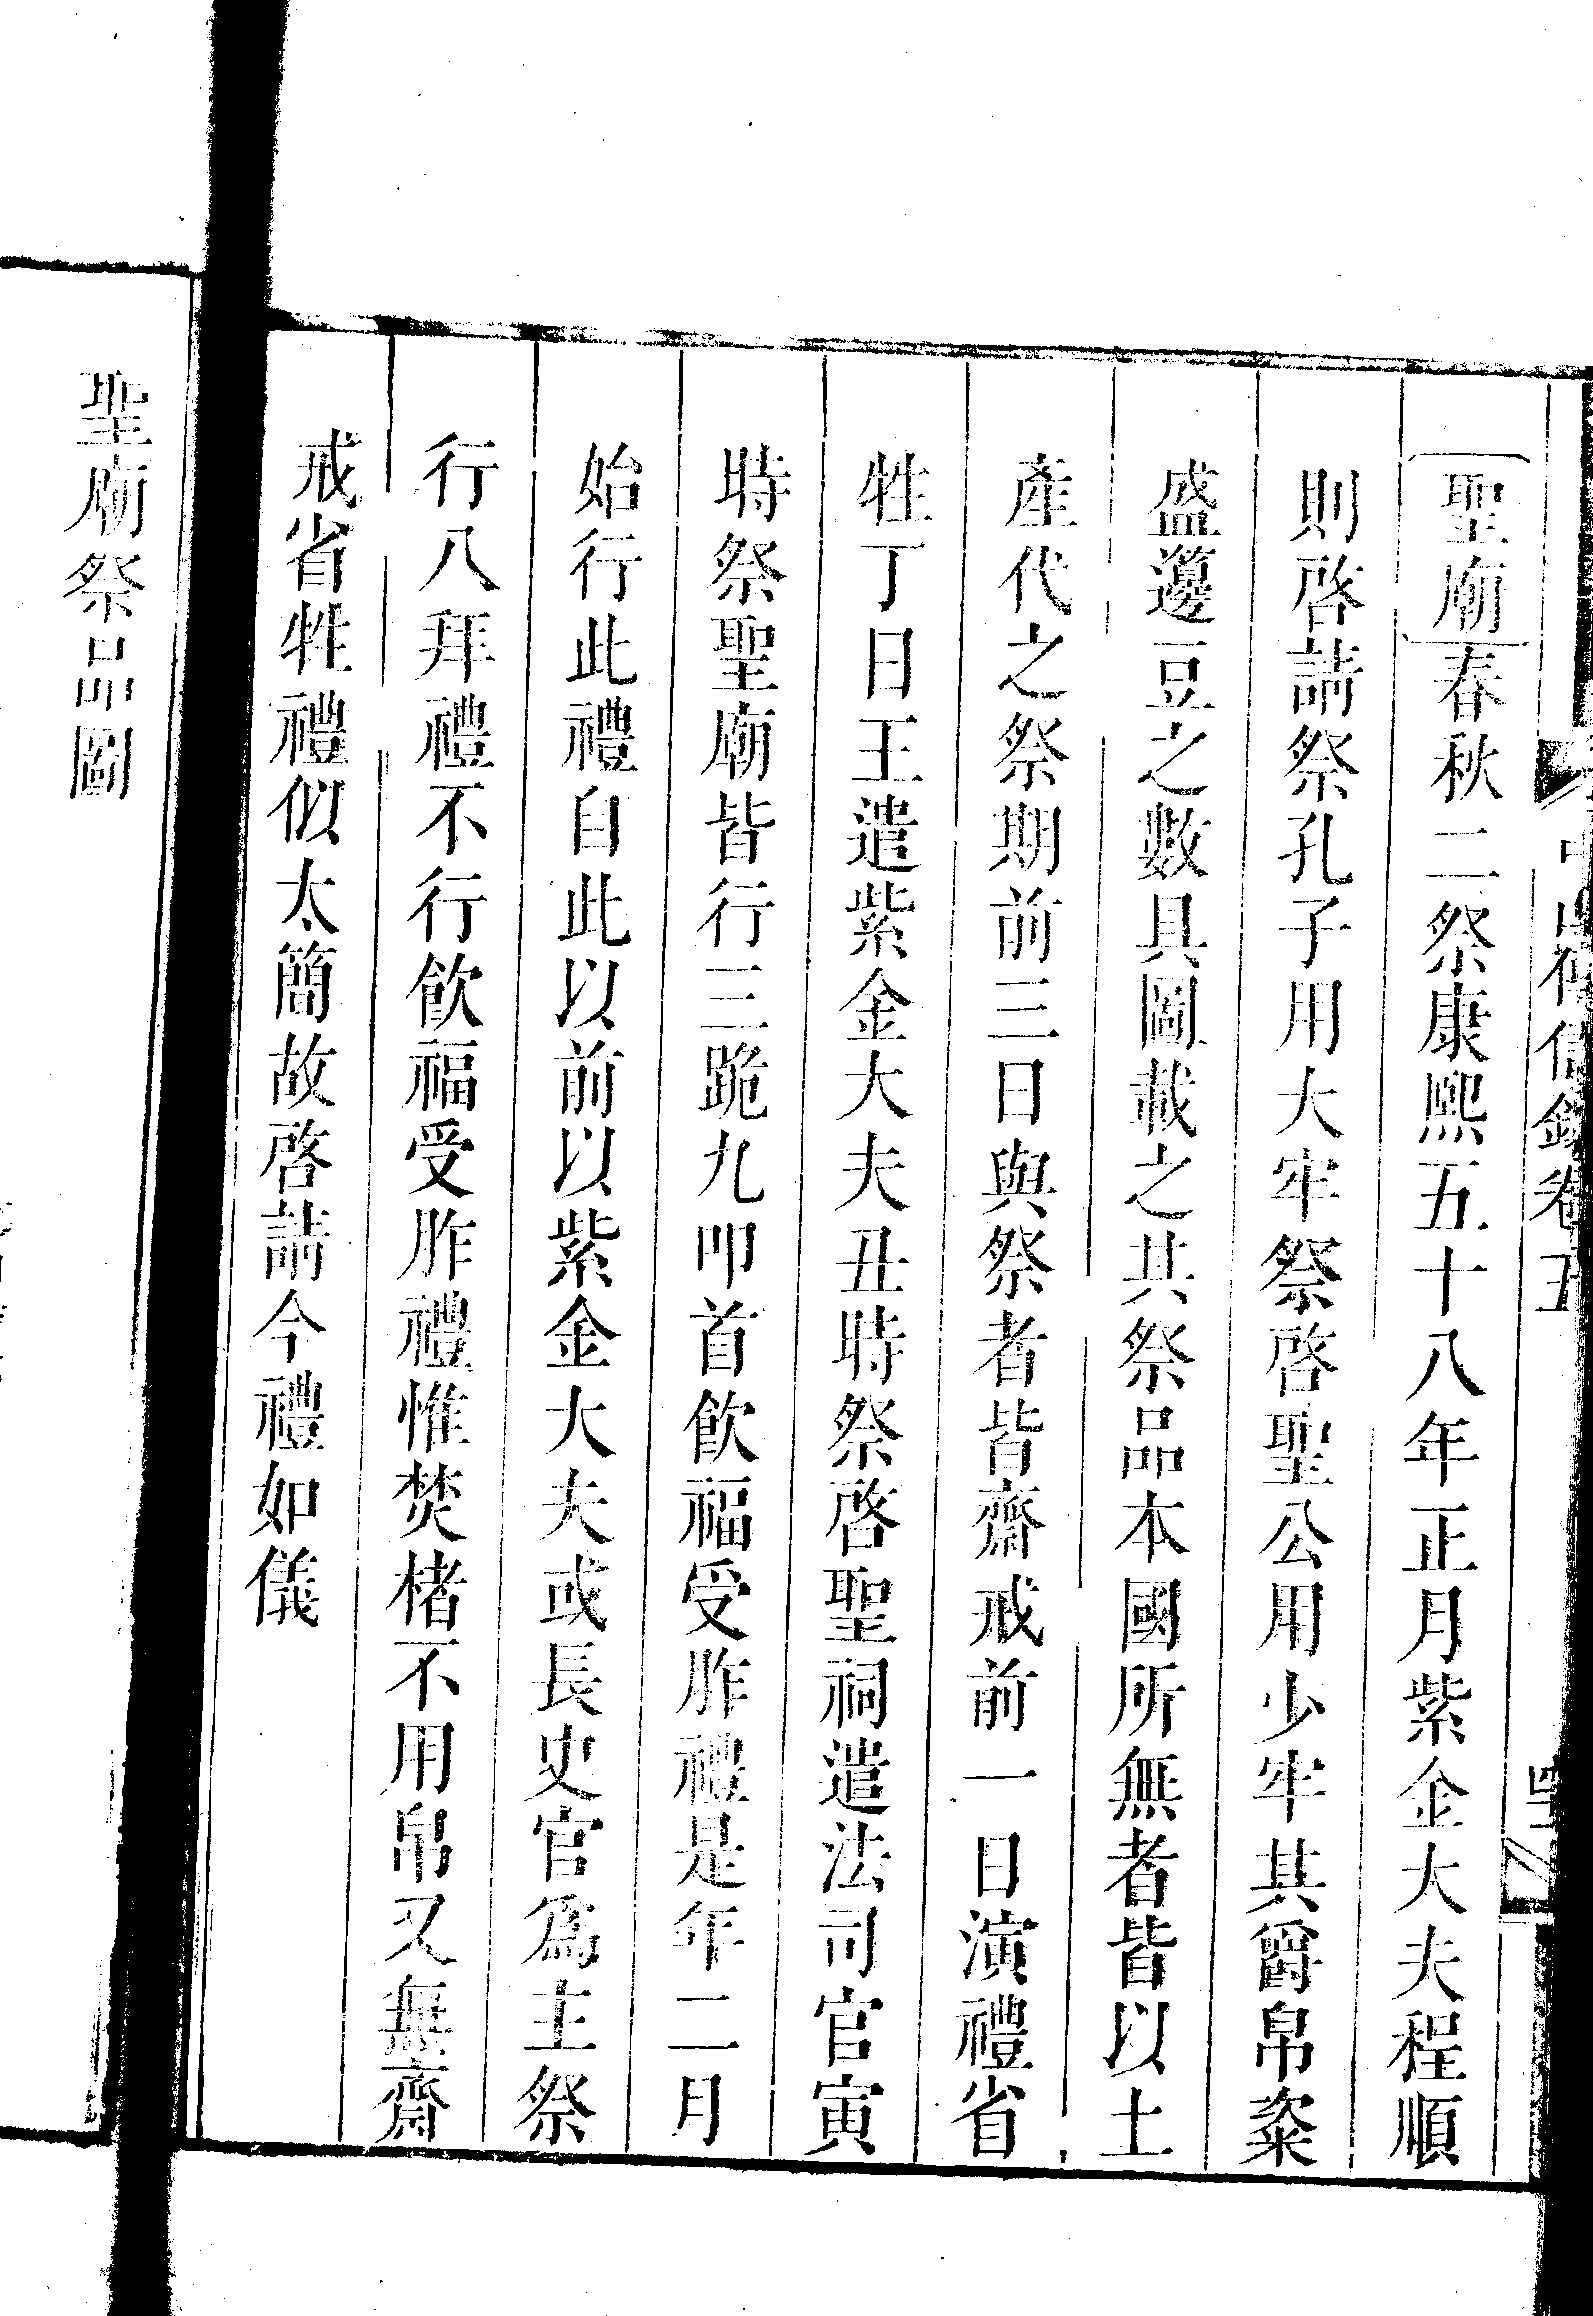 中山傳信錄卷五
聖廟春秋二祭康熙五十八年正月紫金大夫程順
則啓請祭孔子用大牢祭啓聖公用少牢其爵帛粢
盛籩豆之數具圖載之其祭品本國所無者皆以土
產代之祭期前三日與祭者皆齋戒前一日演禮省
牲丁日王遣紫金大夫丑時祭啓聖祠遣法司官寅
時祭聖廟皆行三跪九叩首飮福受胙禮是年二月
始行此禮自此以前以紫金大夫或長史官爲主祭
行八拜禮不行飮福受胙禮惟焚楮不用帛又無齋
戒省牲禮似太簡故啓請今禮如儀
聖廟祭品圖